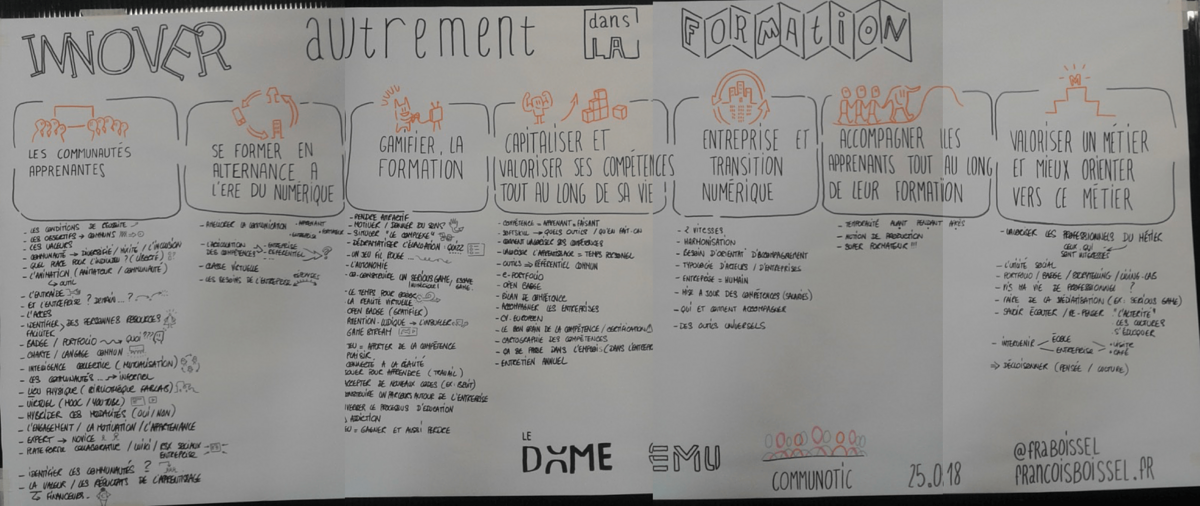 INNOVER autrement dans LA FORMATION
LES COMMUNAUTÉS
APPRENANTES
- LES CONDITIONS DE RÉUSSITE
- LES OBJECTIFS → COMMUNS
- LES VALEURS
- COMMUNAUTÉ → DIVERSITÉ / MIXITÉ / L'INCLUSION
- QUEL PLACE POUR L'INDIVIDU ? (LIBERTÉ)
- L'ANIMATION (ANIMATEUR / COMMUNAUTÉ)
↳ OUTIL
- L'ENTRAIDE
- ET L'ENTREPRISE ? DEMAIN... ?
- L'ACCÈS
- IDENTIFIER DES PERSONNES RESSOURCES
FACILITER
- BADGE / PORTFOLIO → QUOI ???
- CHARTE / LANGAGE COMMUN
- INTELLIGENCE COLLECTIVE (MUTUALISATION)
- LES COMMUNAUTÉS... → INFORMEL
- LIEU PHYSIQUE (BIBLIOTHÈQUE FABLABS)
- VIRTUEL (MOOC / YOUTUBE)
- HYBRIDER CES MODALITÉS (OUI / NON)
- L'ENGAGEMENT / LA MOTIVATION / L'APPARTENANCE
- EXPERT → NOVICE
- PLATEFORME COLLABORATIVE / WIKI / RSX SOCIAUX
ENTREPRISE
- IDENTIFIER LES COMMUNAUTÉS ?
- LA VALEUR / LES RÉSULTATS DE L'APPRENTISSAGE
↳ FINANCEUR
SE FORMER EN
ALTERNANCE A
L'ÈRE DU NUMÉRIQUE
- AMÉLIORER LA COMMUNICATION
- L'ACQUISITION → ENTREPRISE
DES COMPÉTENCES → RÉFÉRENTIEL
- CLASSE VIRTUELLE
- LES BESOINS DE L'ENTREPRISE
GAMIFIER, LA
FORMATION
- RENDRE ATTRACTIF
- MOTIVER / DONNER DU SENS
- SIMULER "LE COMPLEXE"
- DÉDRAMATISER L'ÉVALUATION QUIZZ
- UN JEU FIL ROUGE
- L'AUTONOMIE
- CO-CONSTRUIRE UN SERIOUS GAME / ESCAPE GAME
- LE TEMPS POUR
LA RÉALITÉ VIRTUELLE
OPEN BADGE (GRATIFIER)
ATTENTION LUDIQUE →
GAME
JEU = APPORTER DE LA COMPÉTENCE
PLAISIR
CONNECTÉ A LA RÉALITÉ
JOUER POUR APPRENDRE (TRAVAIL)
ACCEPTER DE NOUVEAUX CODES
CONSTRUIRE UN PARCOURS AUTOUR DE L'ENTREPRISE
LE PROCESSUS D'ÉDUCATION
ADDICTION
JEU = GAGNER ET AUSSI PERDRE
CAPITALISER ET
VALORISER SES COMPÉTENCES
TOUT AU LONG DE SA VIE !
- COMPÉTENCE = APPRENANT → FAISANT
→ QUELS OUTILS / QU'EN FAIT-ON
- COMMENT VALORISER SES COMPÉTENCES
- VALORISER L'APPRENTISSAGE = TEMPS PERSONNEL
- OUTILS → RÉFÉRENTIEL COMMUN
- E-PORTFOLIO
- OPEN BADGE
- BILAN DE COMPÉTENCE
- ACCOMPAGNER LES ENTREPRISES
- CV EUROPEEN
- LE BON COIN DE LA COMPÉTENCE / CERTIFICATION
- CARTOGRAPHIE DES COMPÉTENCES
- ÇA SE PASSE DANS L'EMPLOI. (DANS L'ENTREPR
- ENTRETIEN ANNUEL
ENTREPRISE ET
TRANSITION
NUMÉRIQUE
- 2 VITESSES
- HARMONISATION
- BESOIN D'ORIENTAT° D'ACCOMPAGNEMENT
- TYPOLOGIE D'ACTEURS / D'ENTREPRISES
- ENTREPRISE = HUMAIN
- MISE A JOUR DES COMPÉTENCES (SALARIÉS)
- QUI ET COMMENT ACCOMPAGNER
- DES OUTILS UNIVERSELS
ACCOMPAGNER LES
APPRENANTS TOUT AU LONG
DE LEUR FORMATION
- TEMPORALITÉ AVANT PENDANT APRÈS
- ACTION DE PRODUCTION
- SUPER FORMATEUR !!!
VALORISER UN MÉTIER
ET MIEUX ORIENTER
VERS CE MÉTIER
- VALORISER LES PROFESSIONNELS DU MÉTIER
CEUX QUI
SONT VISIBLES
- L'UTILITÉ SOCIAL
- PORTFOLIO / BADGE / STORYTELLING /
- MA VIE DE PROFESSIONNEL ?
- FAIRE DE LA MÉDIATISATION (EX: SERIOUS GAME)
- SAVOIR ÉCOUTER / RE-PENSER "L'ALTÉRITÉ"
LES CULTURES
S'ÉDUQUER
- INTERVENIR ÉCOLE
ENTREPRISE • VISITE
⇒ DÉCLOISONNER (PENSÉE / CULTURE)
LE
DÔME
EMU
COMMUNOTIC
25.0.18
@FRABOISSEL
FRANCOISBOISSEL.FR